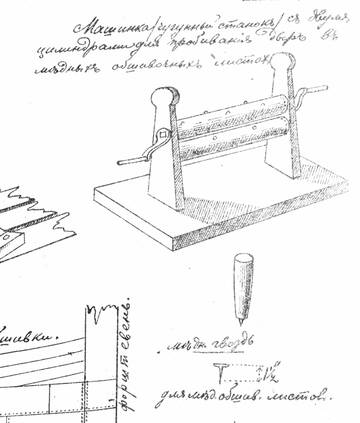 Машинка /чугунный станокъ/ съ двумя
цилиндрами для пробиванія дыръ въ
мѣдныхъ обшивочныхъ листахъ
шивки.
форштевень.
мѣдн. гвоздь
1½"
для мѣд. обшив. листов.